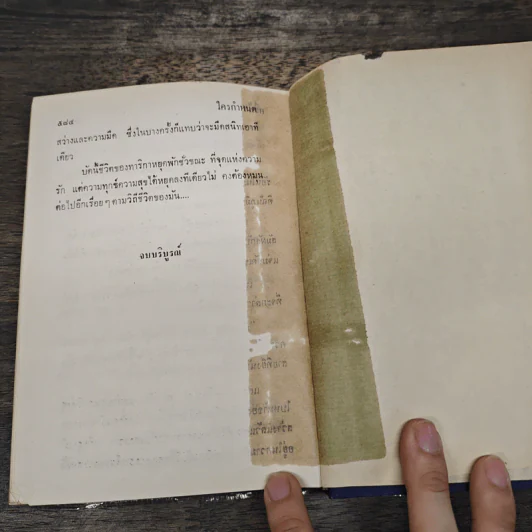 ๕๔๔
ใครกำหนด
สว่างและความมืด ซึ่งในบางครั้งก็แทบว่าจะมืดสนิทเอาที
เดียว
บัดนี้ชีวิตของทาริกาหยุดพักชั่วขณะ ที่จุดแห่งความ
รัก แต่ความทุกข์ความสุขได้หยุดลงทีเดียวไม่ คงต้องหมุน
ต่อไปอีกเรื่อยๆ ตามวิถีชีวิตของมัน....
จบบริบูรณ์